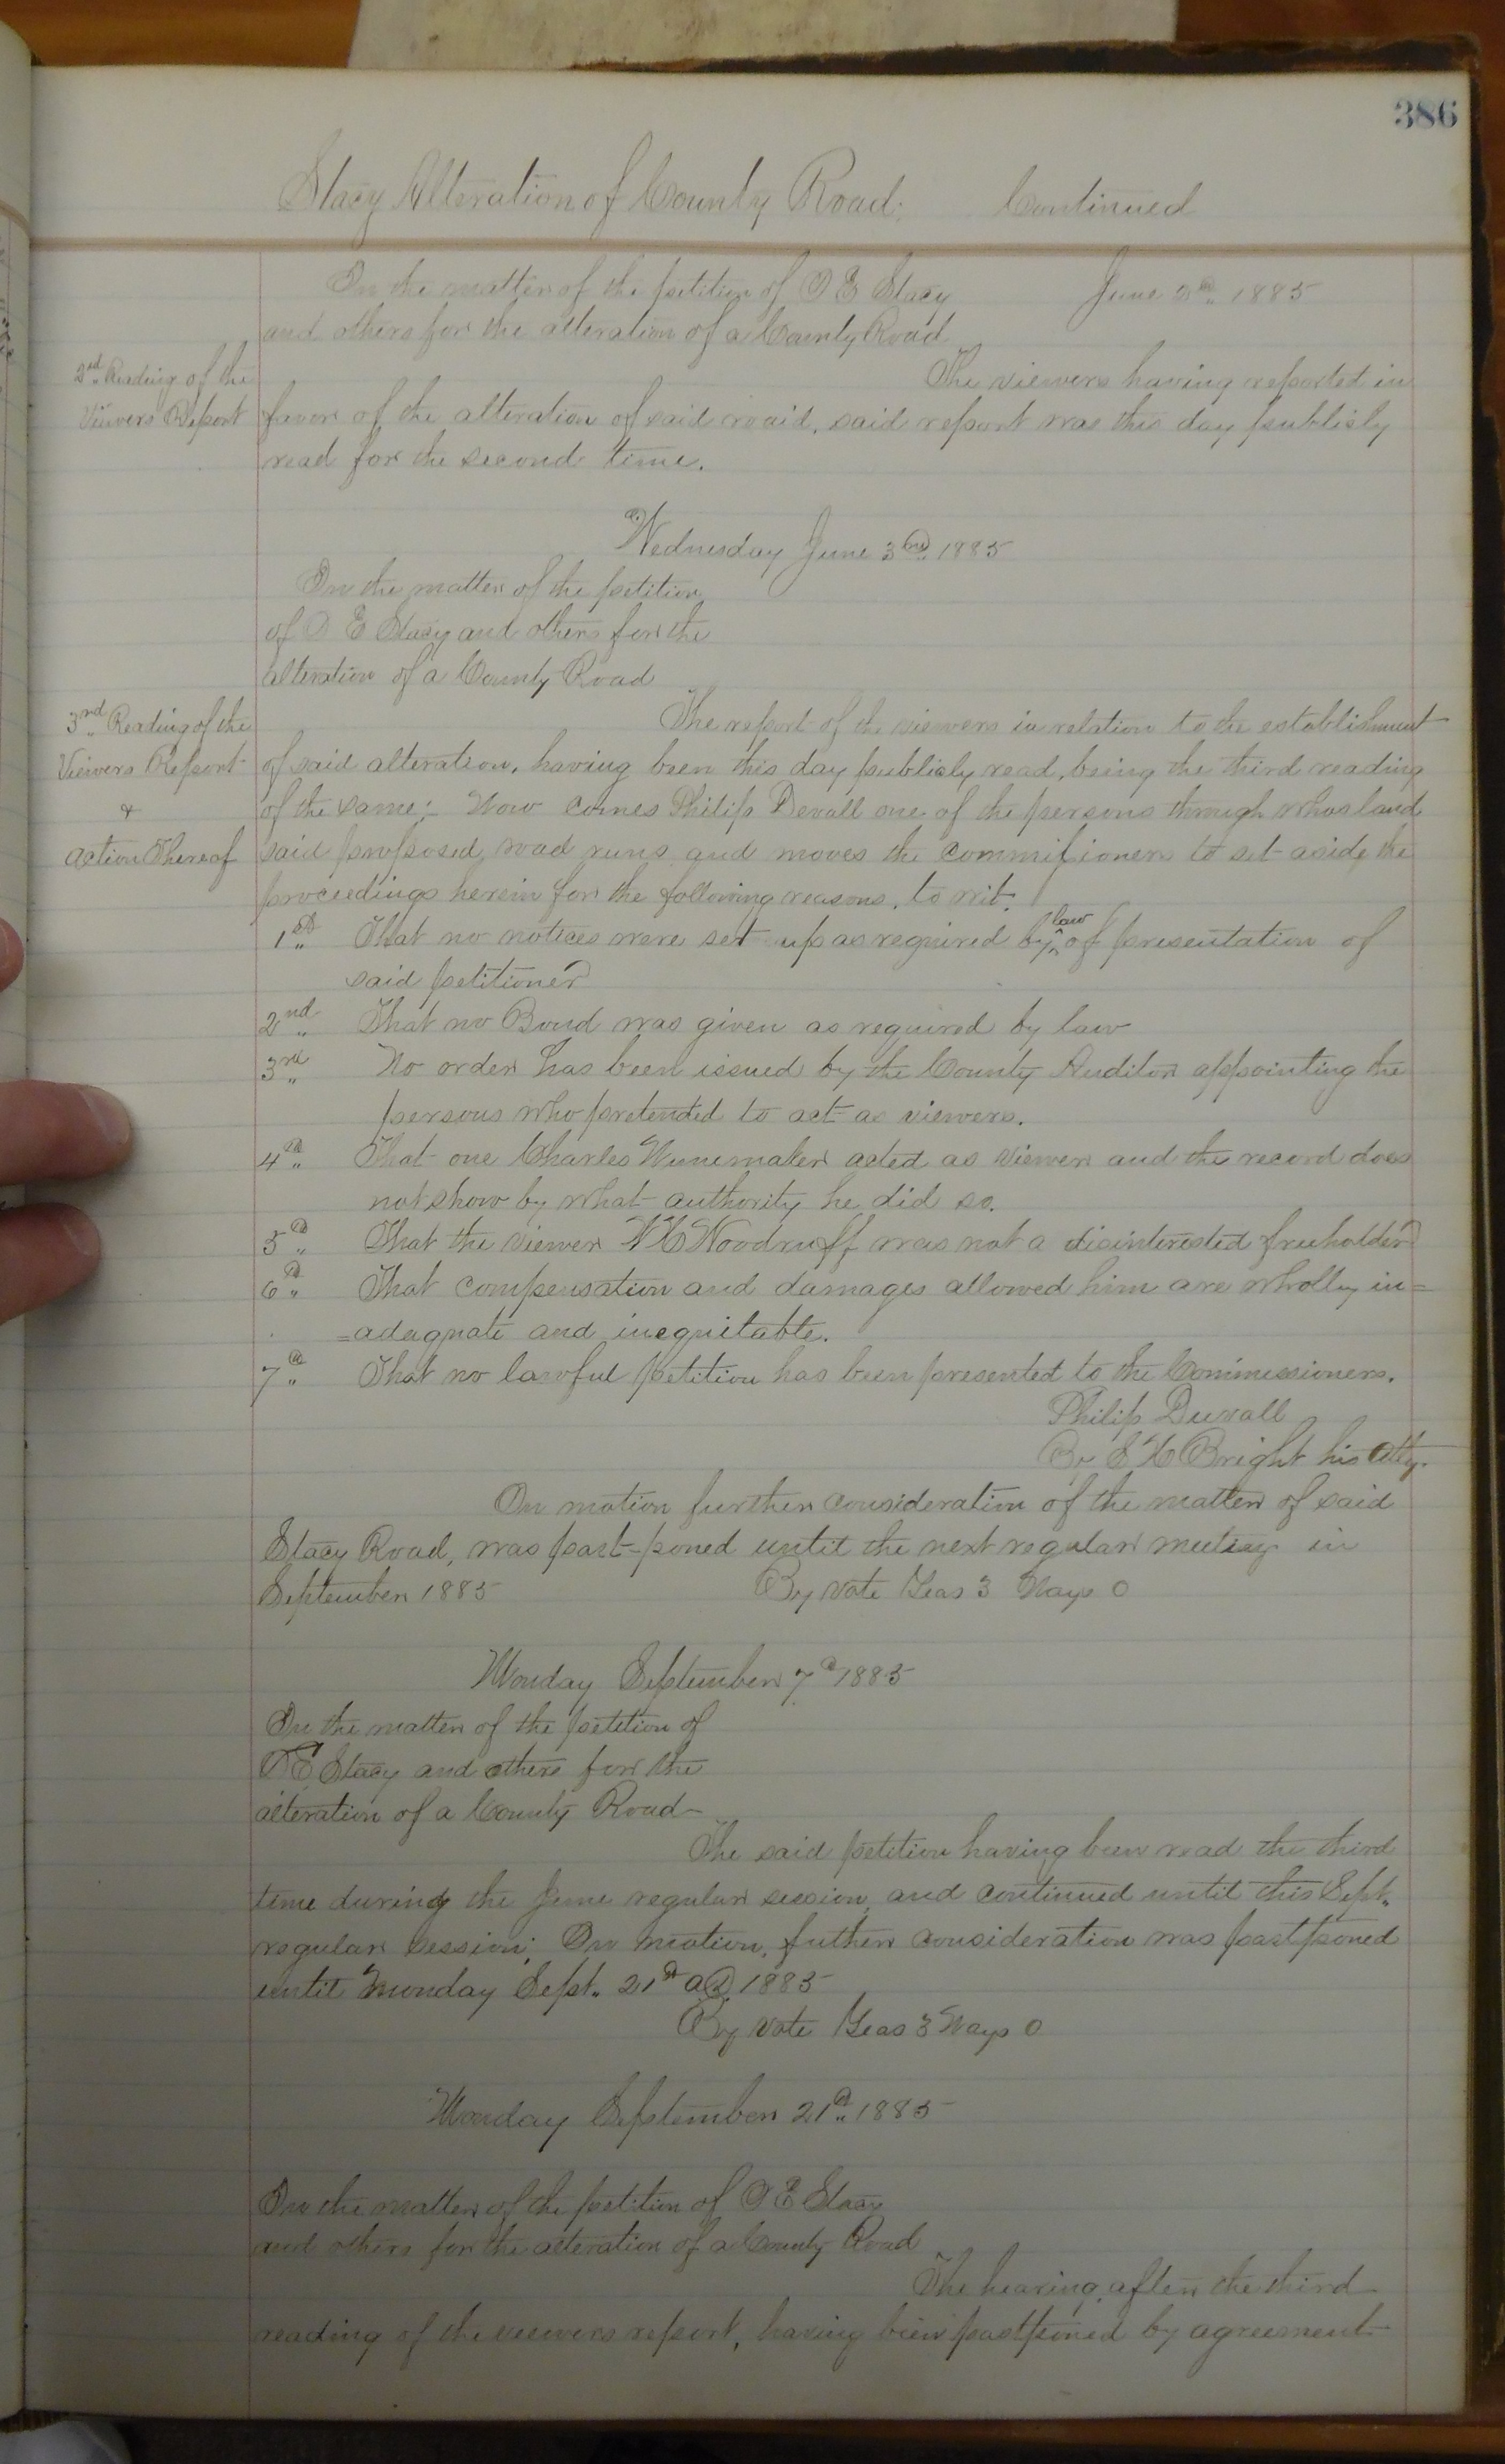 386
Stacy Alteration of County Road. Continued
In the matter of the petition of D E Stacy June 2nd 1885
and others for the alteration of a County Road
The viewers having reported in
2nd Reading of the
Viewers Report
favor of the alteration of said road, said report was this day publicly
read for the second time.
Wednesday June 3rd 1885
In the matter of the petition
of D E Stacy and others for the
alteration of a County Road
3rd Reading of the
Viewers Report
&
Action Thereof
The report of the viewers in relation to the establishment
of said alteration, having been this day publicly read, being the third reading
of the same;- Now comes Philip Devall one of the persons through whos land
said proposed road runs and moves the commissioners to set aside the
proceedings herein for the following reasons, to wit.
1st That no notices were set up as required by law of presentation of
said petitioner
2nd That no Bond was given as required by law
3rd No order has been issued by the County Auditor appointing the
persons who pretended to act as viewers.
4th That one Charles Wunemaker acted as viewer and the record does
not show by what authority he did so.
5th That the viewer W C Woodruff was not a disinterested freeholder
6th That compensation and damages allowed him are wholly in=
=adaquate and inequitable.
7th That no lawful petition has been presented to the Commissioners.
Philip Duvall
By S H Bright his atty.
On motion further consideration of the matter of said
Stacy Road, was past-poned until the next regular meeting in
September 1885 By vote Yeas 3 Nays 0
Monday September 7th 1885
In the matter of the petition of
D E Stacy and others for the
alteration of a County Road-
The said petition having been read the third
time during the June regular session, and continued until this Sept.
regular session; On motion, futher consideration was pastponed
until Monday Sept. 21st AD. 1885
By vote Yeas 3 Nays 0
Monday September 21st 1885
In the matter of the petition of D E Stacy
and others for the alteration of a County Road
The hearing, after the third
reading of the viewers report, having been pastponed by agreement